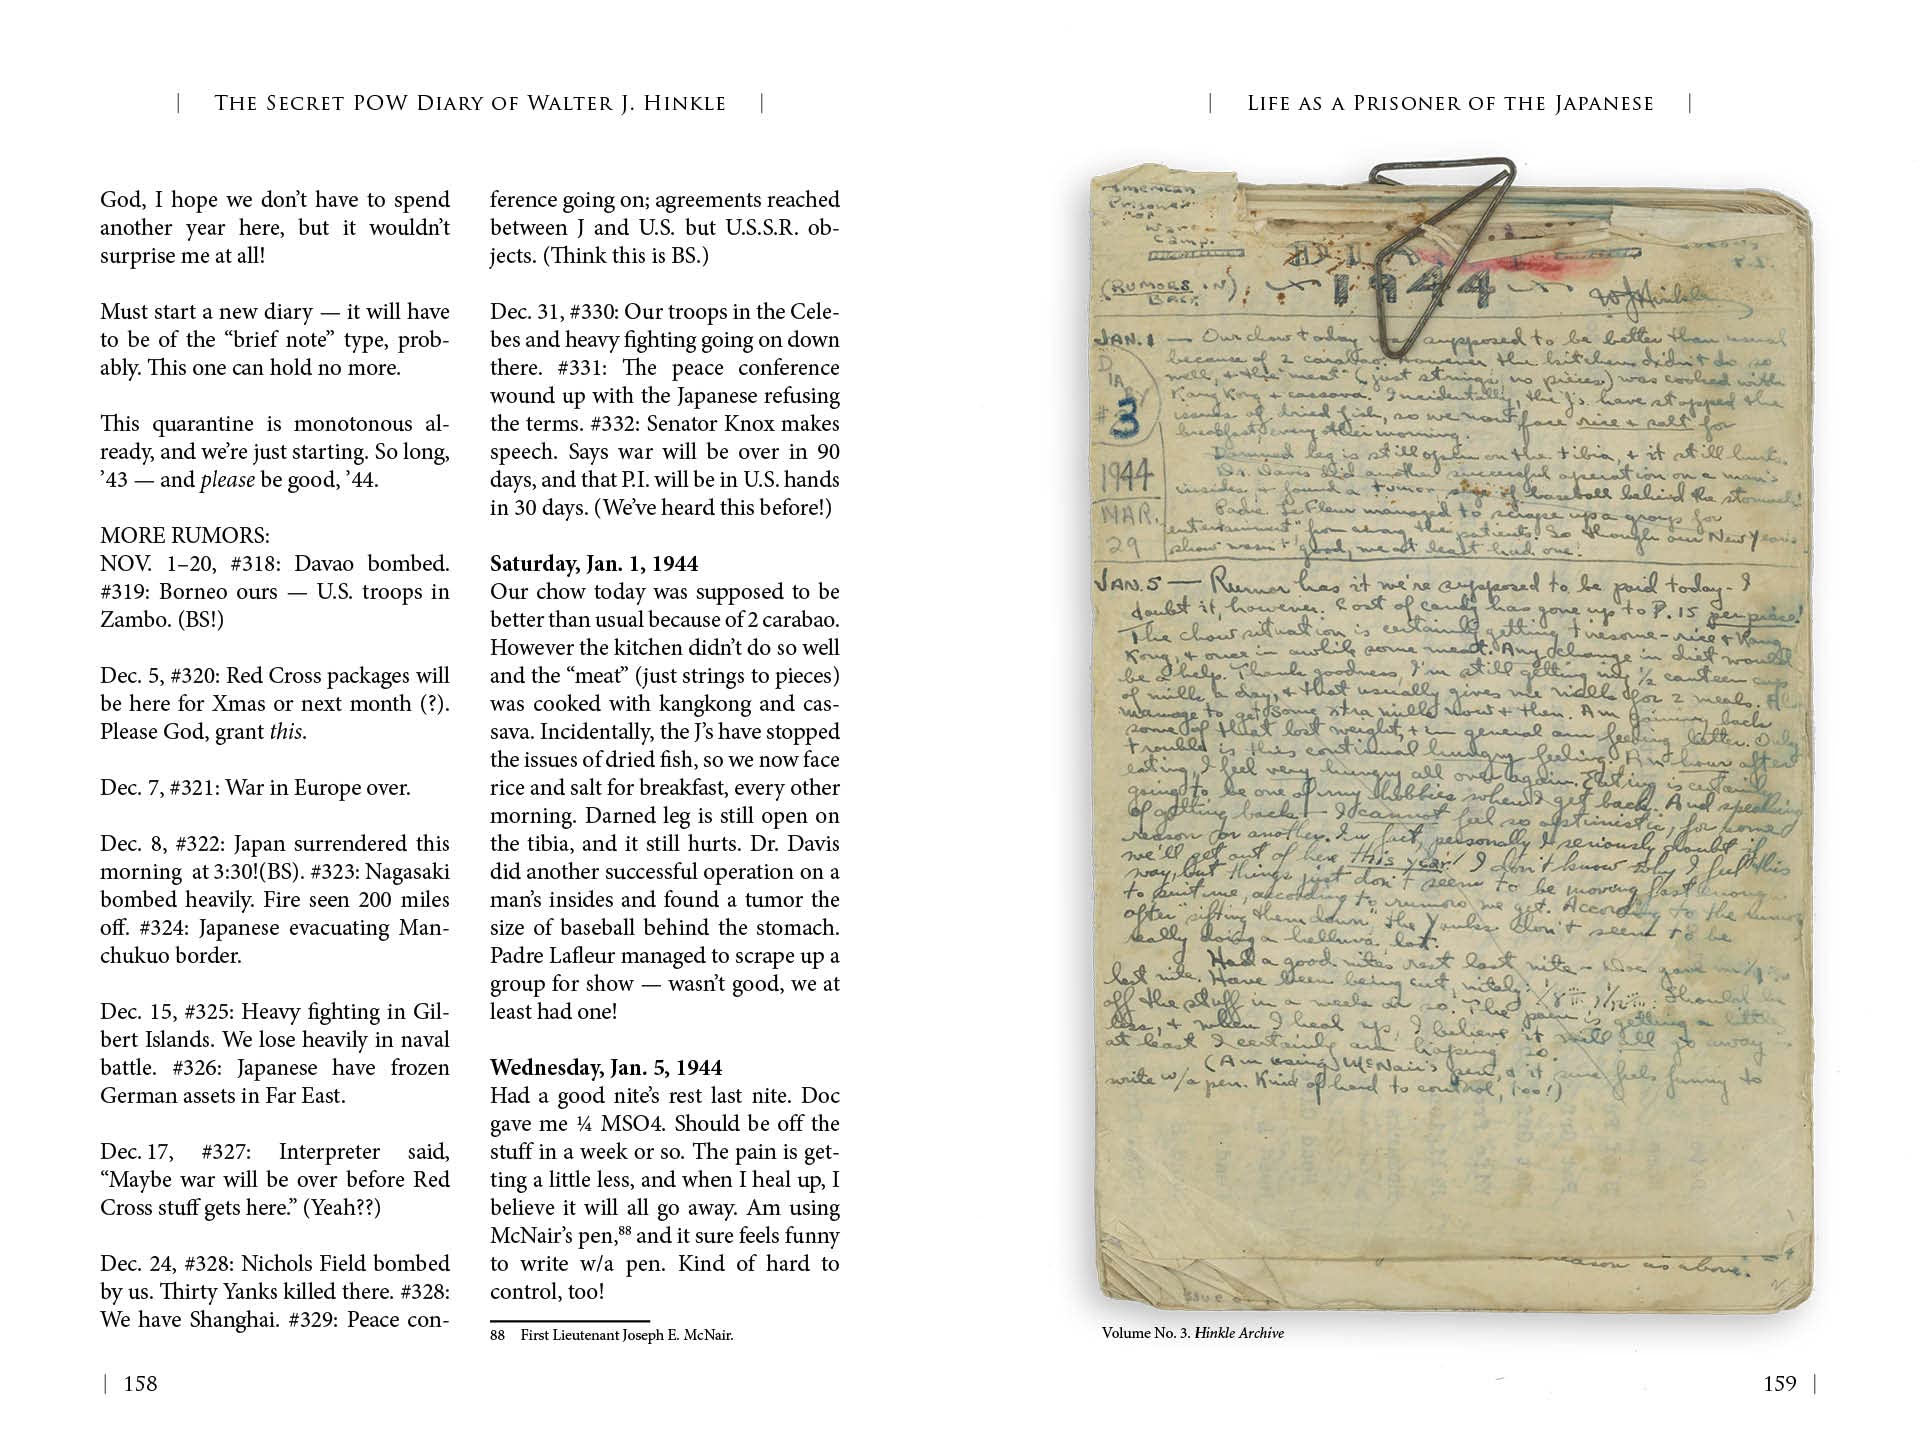 | THE SECRET POW DIARY OF WALTER J. HINKLE |
God, I hope we don’t have to spend
another year here, but it wouldn’t
surprise me at all!
Must start a new diary — it will have
to be of the “brief note” type, prob-
ably. This one can hold no more.
This quarantine is monotonous al-
ready, and we’re just starting. So long,
’43 — and please be good, ’44.
MORE RUMORS:
NOV. 1–20, #318: Davao bombed.
#319: Borneo ours — U.S. troops in
Zambo. (BS!)
Dec. 5, #320: Red Cross packages will
be here for Xmas or next month (?).
Please God, grant this.
Dec. 7, #321: War in Europe over.
Dec. 8, #322: Japan surrendered this
morning at 3:30!(BS). #323: Nagasaki
bombed heavily. Fire seen 200 miles
off. #324: Japanese evacuating Man-
chukuo border.
Dec. 15, #325: Heavy fighting in Gil-
bert Islands. We lose heavily in naval
battle. #326: Japanese have frozen
German assets in Far East.
Dec. 17, #327: Interpreter said,
“Maybe war will be over before Red
Cross stuff gets here.” (Yeah??)
Dec. 24, #328: Nichols Field bombed
by us. Thirty Yanks killed there. #328:
We have Shanghai. #329: Peace con-
ference going on; agreements reached
between J and U.S. but U.S.S.R. ob-
jects. (Think this is BS.)
Dec. 31, #330: Our troops in the Cele-
bes and heavy fighting going on down
there. #331: The peace conference
wound up with the Japanese refusing
the terms. #332: Senator Knox makes
speech. Says war will be over in 90
days, and that P.I. will be in U.S. hands
in 30 days. (We’ve heard this before!)
Saturday, Jan. 1, 1944
Our chow today was supposed to be
better than usual because of 2 carabao.
However the kitchen didn’t do so well
and the “meat” (just strings to pieces)
was cooked with kangkong and cas-
sava. Incidentally, the J’s have stopped
the issues of dried fish, so we now face
rice and salt for breakfast, every other
morning. Darned leg is still open on
the tibia, and it still hurts. Dr. Davis
did another successful operation on a
man’s insides and found a tumor the
size of baseball behind the stomach.
Padre Lafleur managed to scrape up a
group for show — wasn’t good, we at
least had one!
Wednesday, Jan. 5, 1944
Had a good nite’s rest last nite. Doc
gave me ¼ MSO4. Should be off the
stuff in a week or so. The pain is get-
ting a little less, and when I heal up, I
believe it will all go away. Am using
McNair’s pen,88 and it sure feels funny
to write w/a pen. Kind of hard to
control, too!
88 First Lieutenant Joseph E. McNair.
| 158
| LIFE AS A PRISONER OF THE JAPANESE |
American
Prisoner
War
Camp.
(RUMORS IN
BACK)
1944
WJHinkle
JAN. 1 — Our chow today was supposed to be better than usual
because of 2 carabao. However the kitchen didn't do so
well, & the "meat" (just strings, no pieces) was cooked with
Kang Kong & cassava. Incidentally, the J's have stopped the
issues of dried fish, so we now face rice & salt for
breakfast, every other morning.
Damned leg is still open on the tibia, & it still hurts.
Dr. Davis did another successful operation on a man's
insides, & found a tumor, size of baseball behind the stomach!
Padre LeFleur managed to scrape up a group for
"entertainment" from among the patients. So though our New Years
show wasn't good, we at least had one!
DIARY
#3
1944
MAR.
29
JAN. 5 — Rumor has it we're supposed to be paid today - I
doubt it, however. Cost of candy has gone up to P. 15 per piece!
The chow situation is certainly getting tiresome - rice & Kang
Kong, & once in awhile some meat. Any change in diet would
be a help. Thank goodness, I'm still getting my ½ canteen cup
of milk a day, & that usually gives me milk for 2 meals.
manage to get some xtra milk now & then. Am gaining back
some of that lost weight, & in general am feeling better. Only
trouble is this continual hungry feeling. An hour after
eating, I feel very hungry all over again. Eating is certainly
going to be one of my hobbies when I get back. And speaking
of getting back - I cannot feel so optimistic, for some
reason or another. In fact, personally I seriously doubt if
we'll get out of here this year! I don't know why I feel this
way, but things just don't seem to be moving fast enough
to suit me, according to rumors we get. According to the rumors
after "sifting them down", the Yanks don't seem to be
really doing a helluva lot.
Had a good nites rest last nite - Doc gave me
last nite. Have been being cut, nitely: Should be
off the stuff in a week or so. The pain is getting a little
less, & when I heal up, I believe it will all go away -
at least I certainly am hoping so.
(Am using McNair's pen, & it sure feels funny to
write w/a pen. Kind of hard to control, too!)
reason as above.
Volume No. 3. Hinkle Archive
159 |